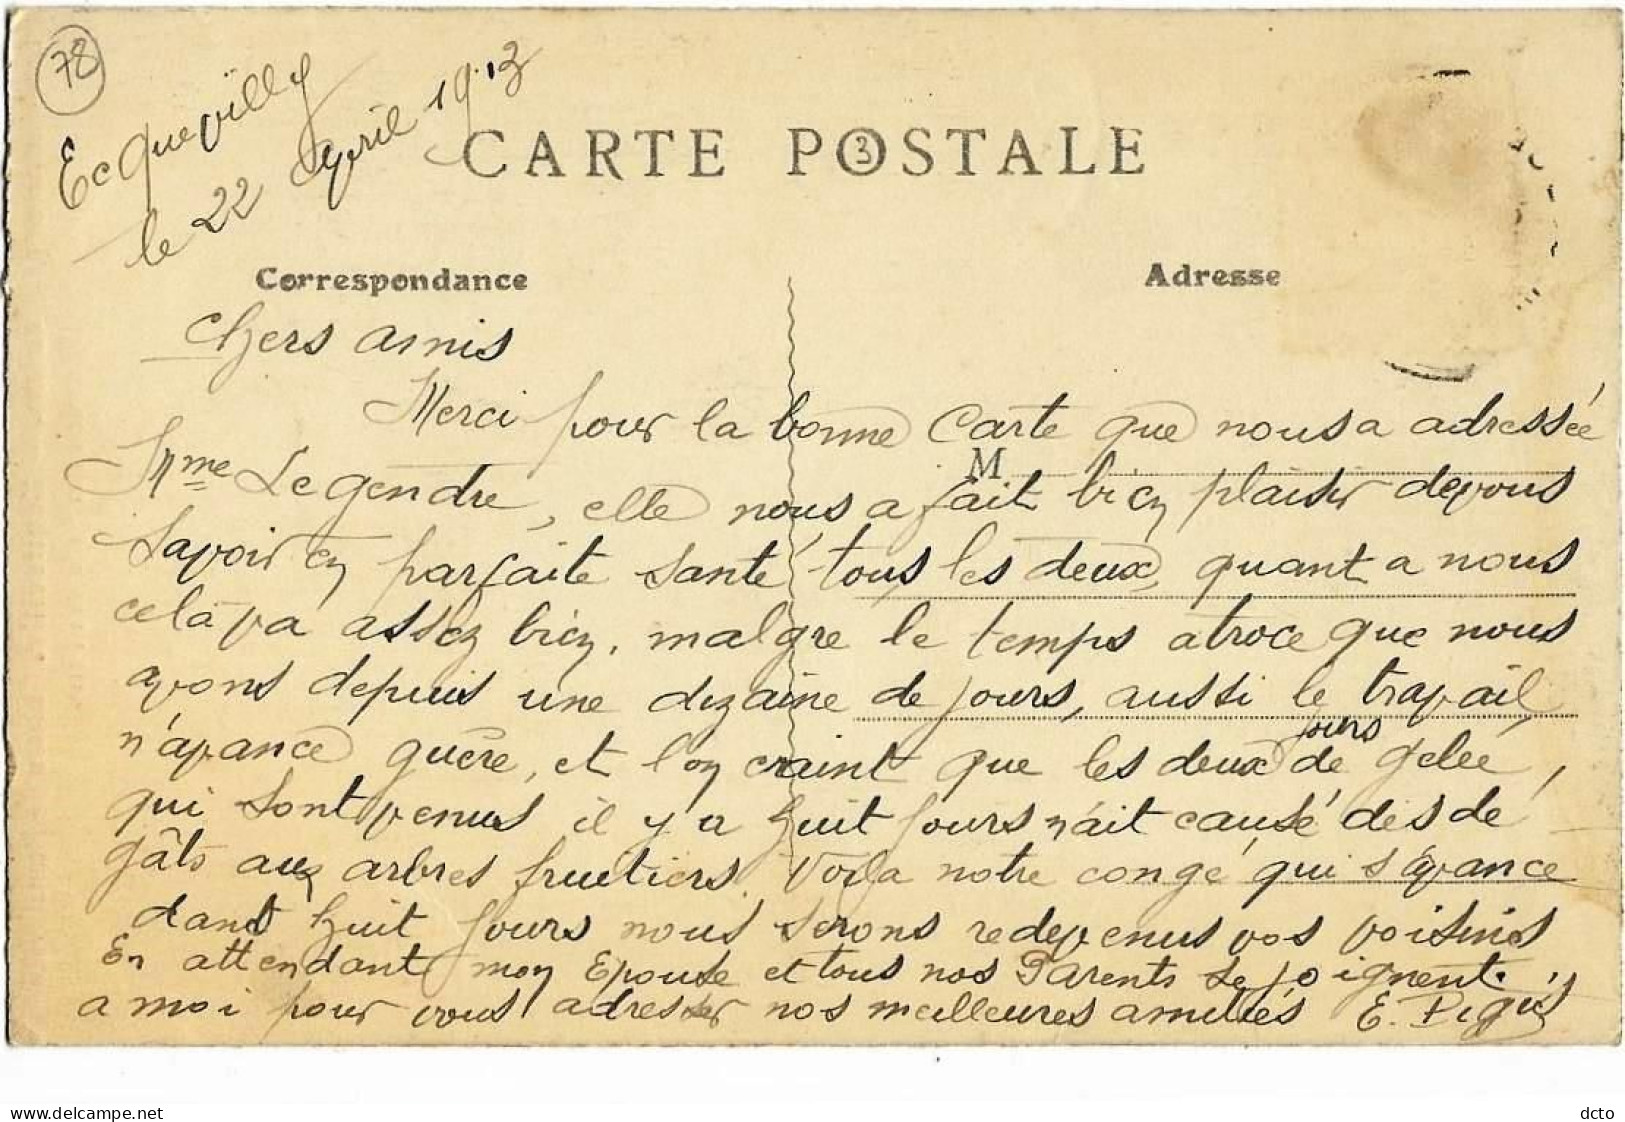 78
Ecquevilly
le 22 Avril 1913
CARTE POSTALE
3
Correspondance
Adresse
Chers amis
Merci pour la bonne Carte que nous a adressée
M
Mme Legendre, elle nous a fait bien plaisir devous
Savoir en parfaite santé tous les deux, quant a nous
celà va assez bien, malgre le temps atroce que nous
avons depuis une dizaine de jours, aussi le travail
n'avance guère, et l'on craint que les deux jours de gelée,
qui sont venus il y a huit jours n'ait causé des dé
gâts aux arbres fruitiers. Voila notre congé qui s'avance
dans huit jours nous serons redevenus vos voisins
En attendant mon Epouse et tous nos Parents se joignent
a moi pour vous adresser nos meilleures amitiés E.
dcto
delcampe.net